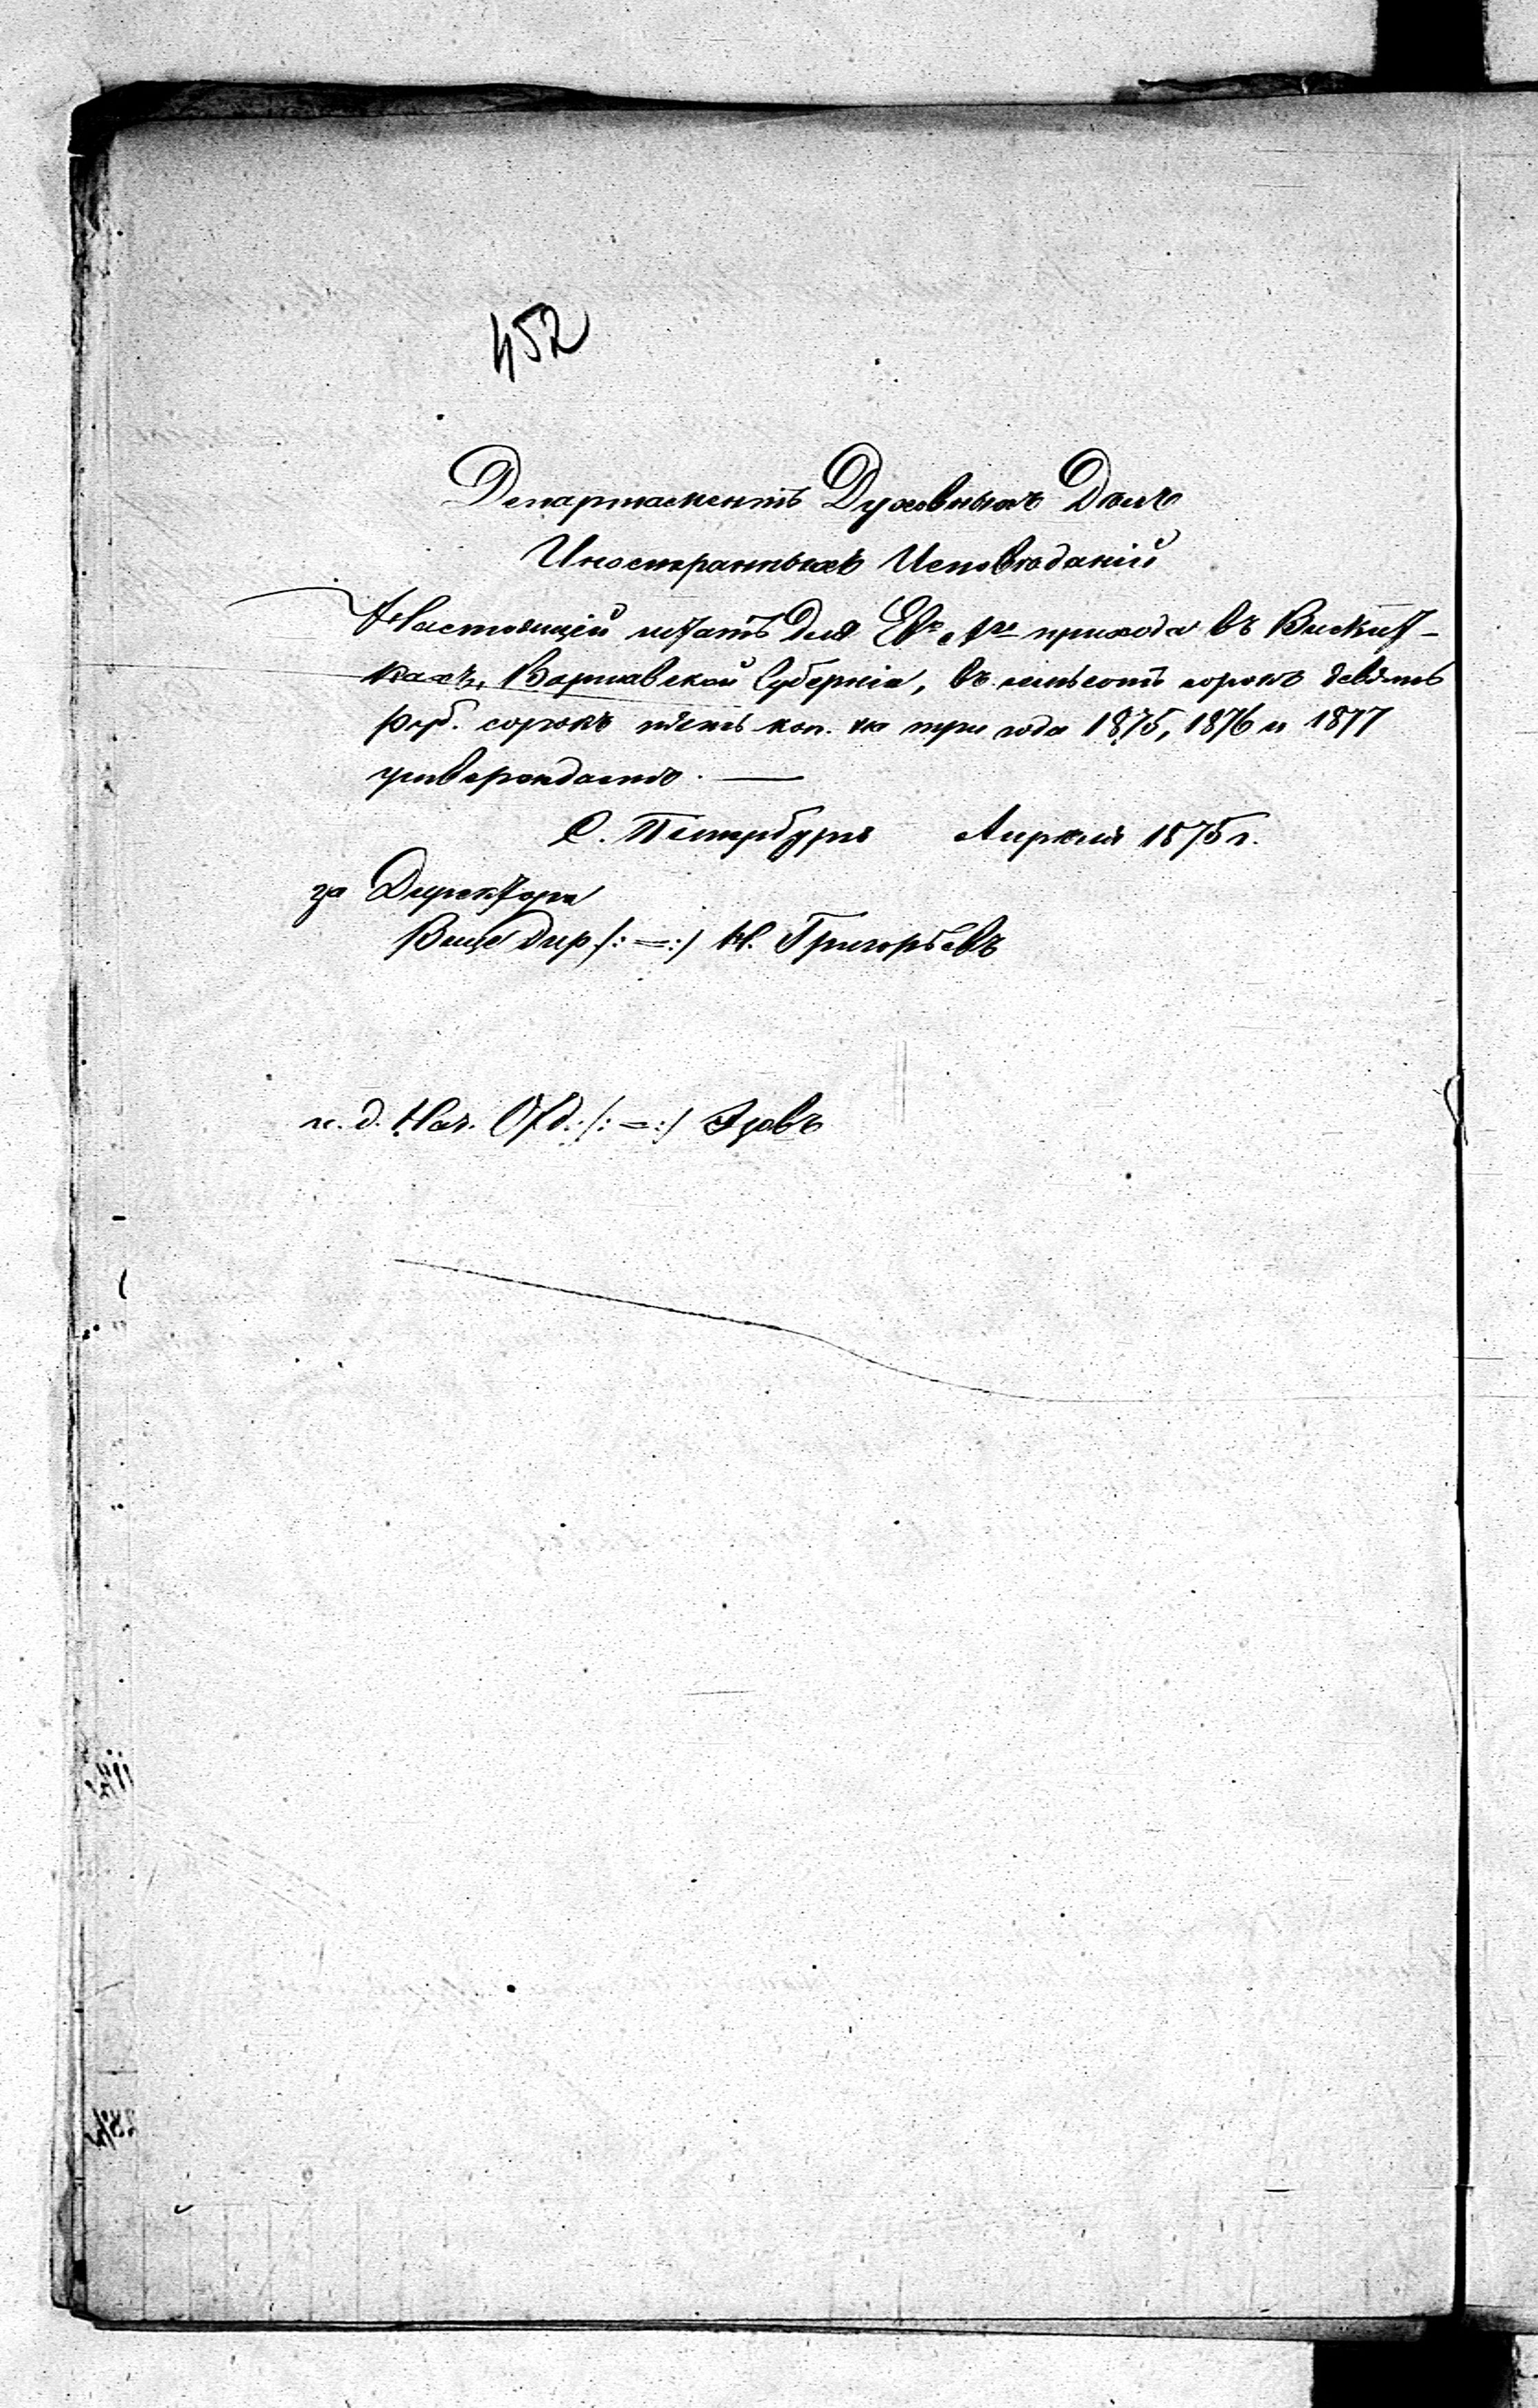 452
Департаментъ Духовныхъ Дѣлъ
Иностранныхъ Исповѣданій
Настоящій штатъ для Ев. прихода въ Вискит-
кахъ, Варшавской Губерніи, въ семьсотъ сорокъ девять
руб. сорокъ пять коп. на три года 1875, 1876 и 1877
утверждаетъ. —
С. Петербургъ Апрѣля 1875 г.
за Директора
Вице Дир. /:=:/ Н. Григорьевъ
и. д. Нач. Отд. /:=:/ Эзовъ